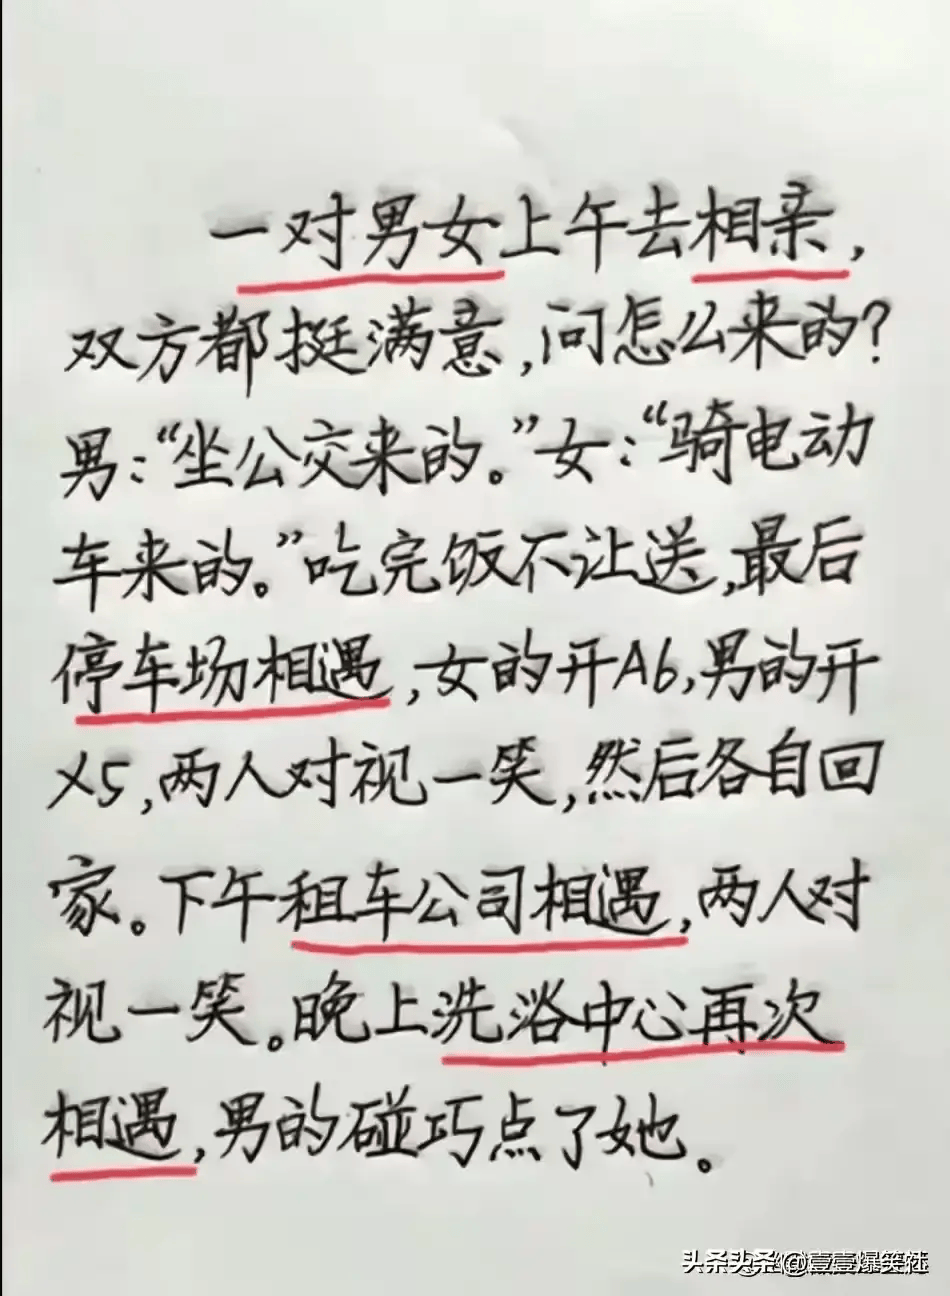 一对男女上午去相亲，
双方都挺满意，问怎么来的？
男：“坐公交来的。”女：“骑电动
车来的。”吃完饭不让送，最后
停车场相遇，女的开A6，男的开
X5，两人对视一笑，然后各自回
家。下午租车公司相遇，两人对
视一笑。晚上洗浴中心再次
相遇，男的碰巧点了她。
头条头条@壹壹爆笑